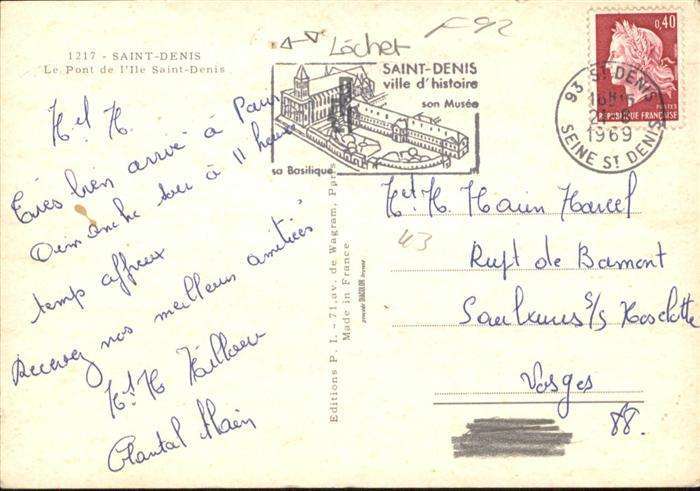 1217 - SAINT-DENIS
Le Pont de l'Ile Saint-Denis
Löchet
F92
SAINT-DENIS
ville d'histoire
son Musée
sa Basilique
0,40
POSTES
RÉPUBLIQUE FRANÇAISE
93 ST DENIS
21-8
1969
SEINE ST DENIS
M et M.
Très bien arrivé à Paris
Dimanche soir à 11 heures
temps affreux
Recevez nos meilleurs amitiés
M et M
Chantal Alain
Editions P. I. - 71, av. de Wagram, Paris
Made in France
M et M Marcel
43
Rupt de Bamont
Saulxures s/s Moselotte
Vosges
88.